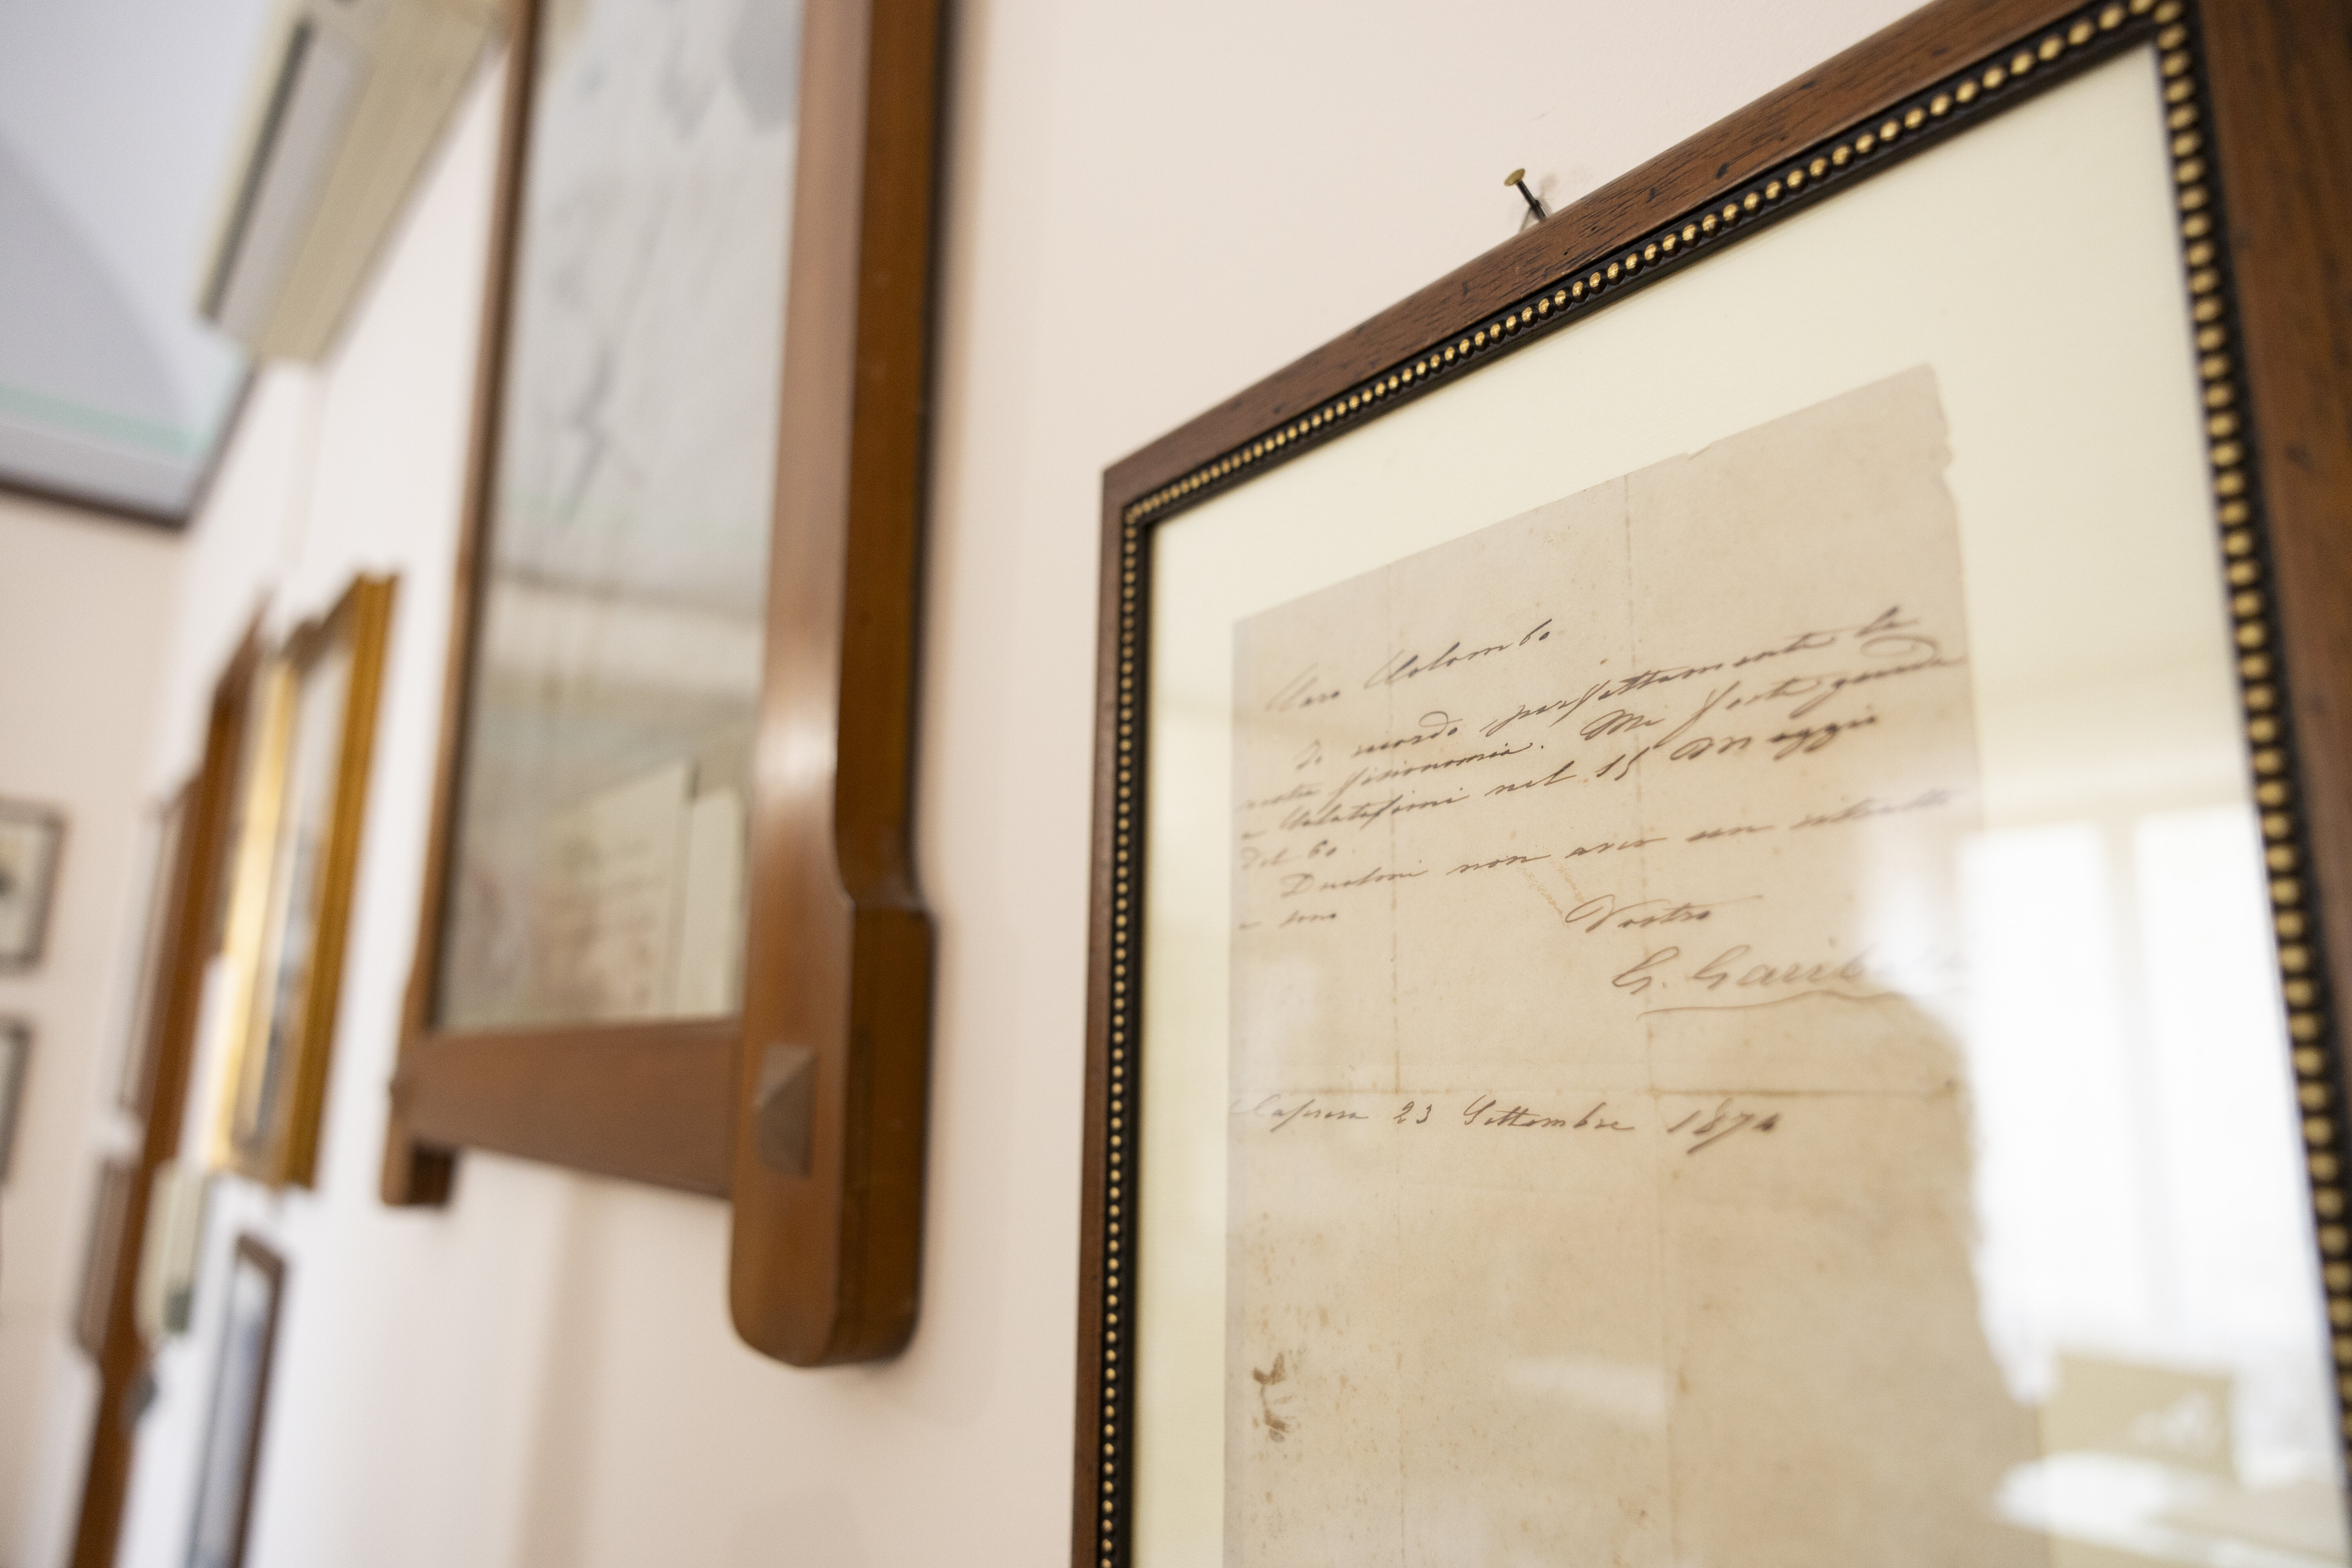 Caro Colombo
Io ricordo perfettamente la
vostra fisionomia. Mi
a Calatafimi nel 15 Maggio
del 60.
Duolmi non aver un ritratto
e sono
Vostro
G. Garib
Caprera 23 Settembre 187